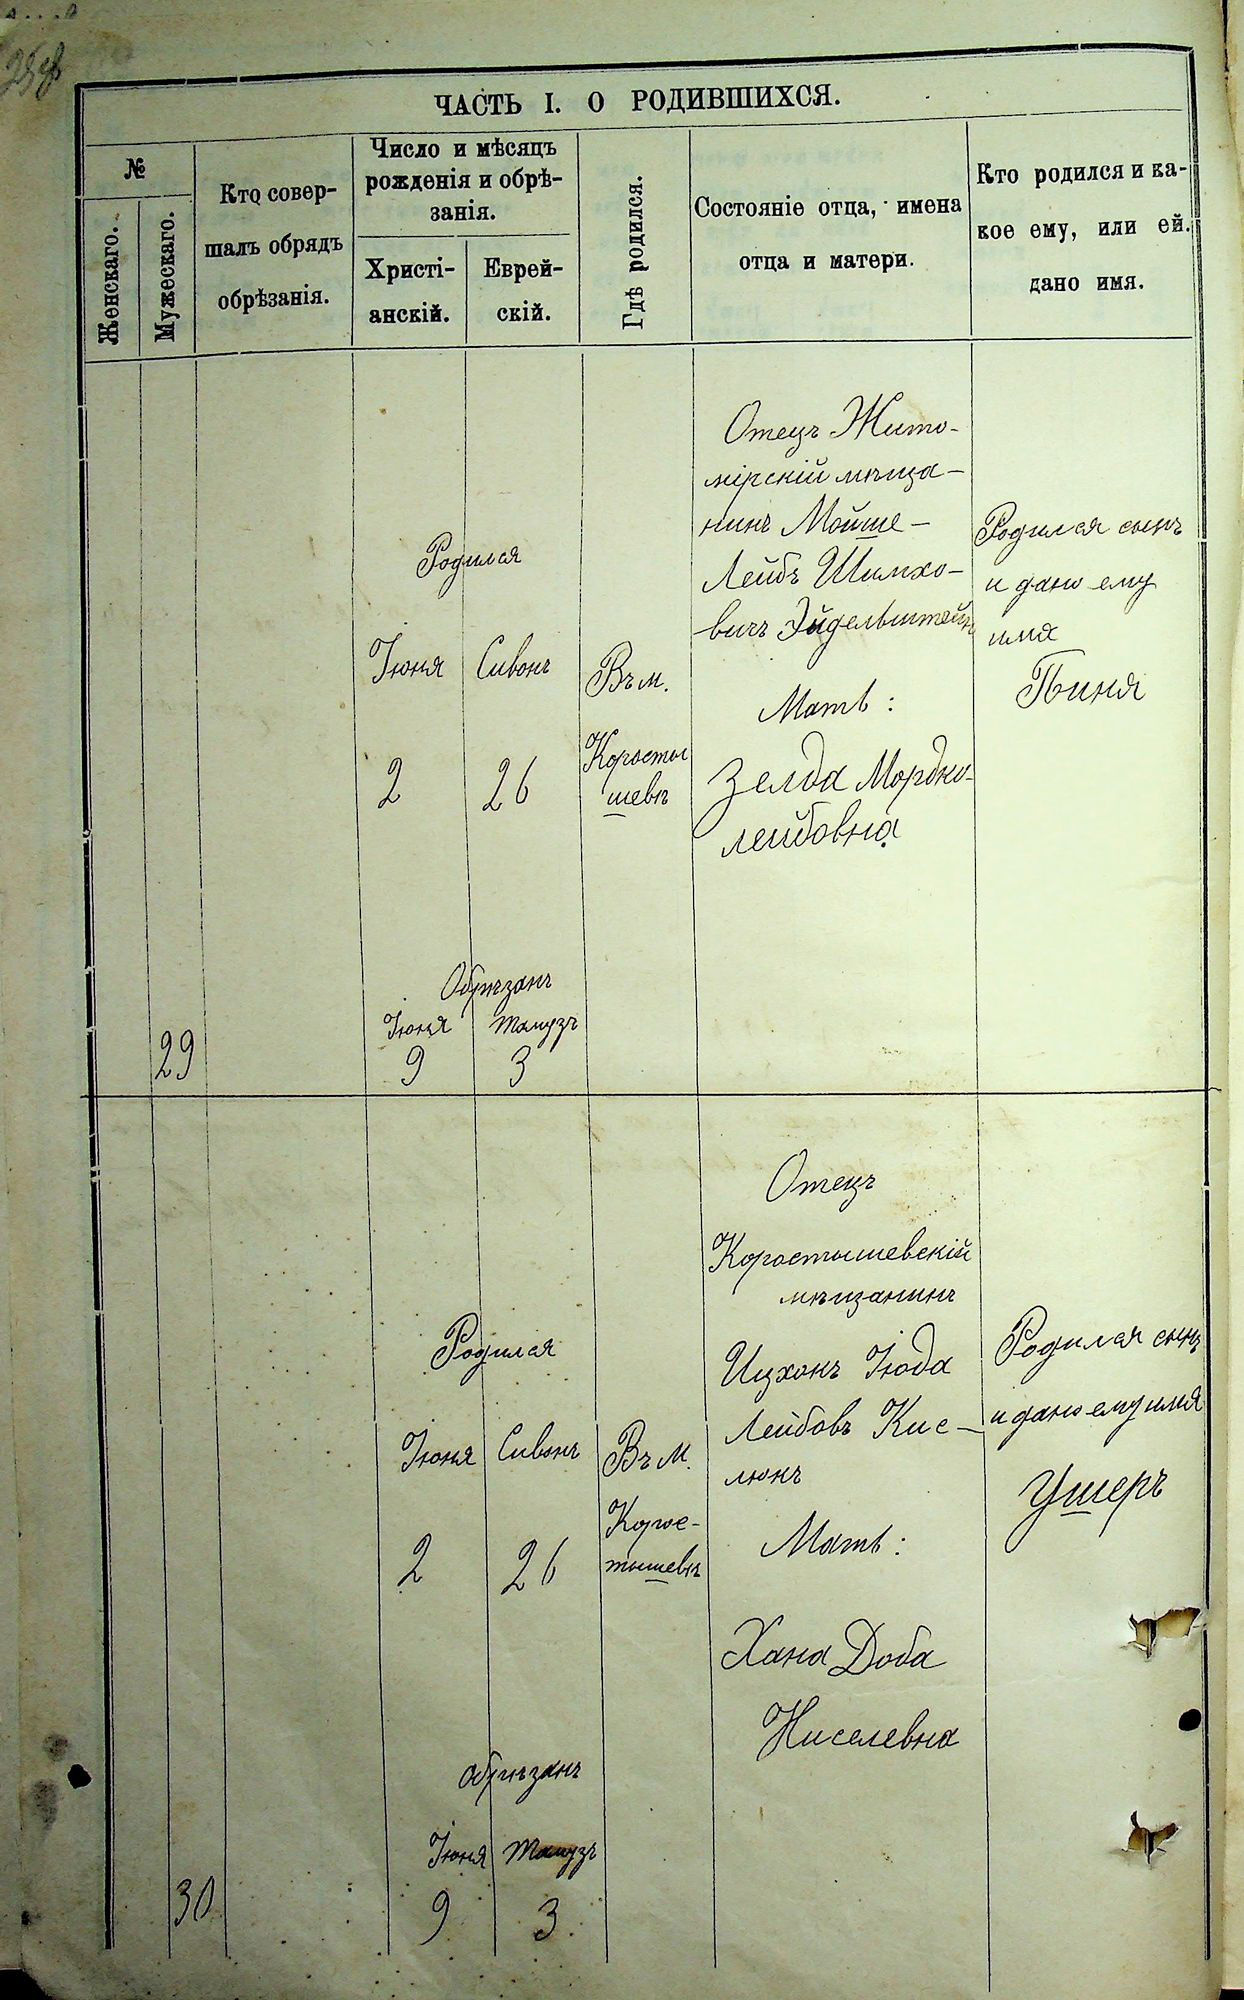 ЧАСТЬ I. О РОДИВШИХСЯ.
№
Женскаго.
Мужескаго.
Кто совер-
шалъ обрядъ
обрѣзанія.
Число и мѣсяцъ
рожденія и обрѣ-
занія.
Христі-
анскій.
Еврей-
скій.
Гдѣ родился.
Состояніе отца, имена
отца и матери.
Кто родился и ка-
кое ему, или ей.
дано имя.
29
Родился
Іюня Сивонъ
2 26
Обрѣзанъ
Іюня Тамузъ
9 3
Въ м.
Коросты
шевѣ
Отецъ Жито-
мірскій мѣща-
нинъ Мойше-
Лейбъ Шимхо-
вичъ Эйдельштейнъ
Мать:
Зелда Мордко-
лейбовна
Родился сынъ
и дано ему
имя
Пиня
30
Родился
Іюня Сивонъ
2 26
обрѣзанъ
Іюня Тамузъ
9 3
Въ м.
Корос-
тышевѣ
Отецъ
Коростышевскій
мѣщанинъ
Ицхокъ Іюда
Лейбовъ Кис-
люкъ
Мать:
Хана Доба
Киселевна
Родился сынъ
и дано ему имя
Ушеръ